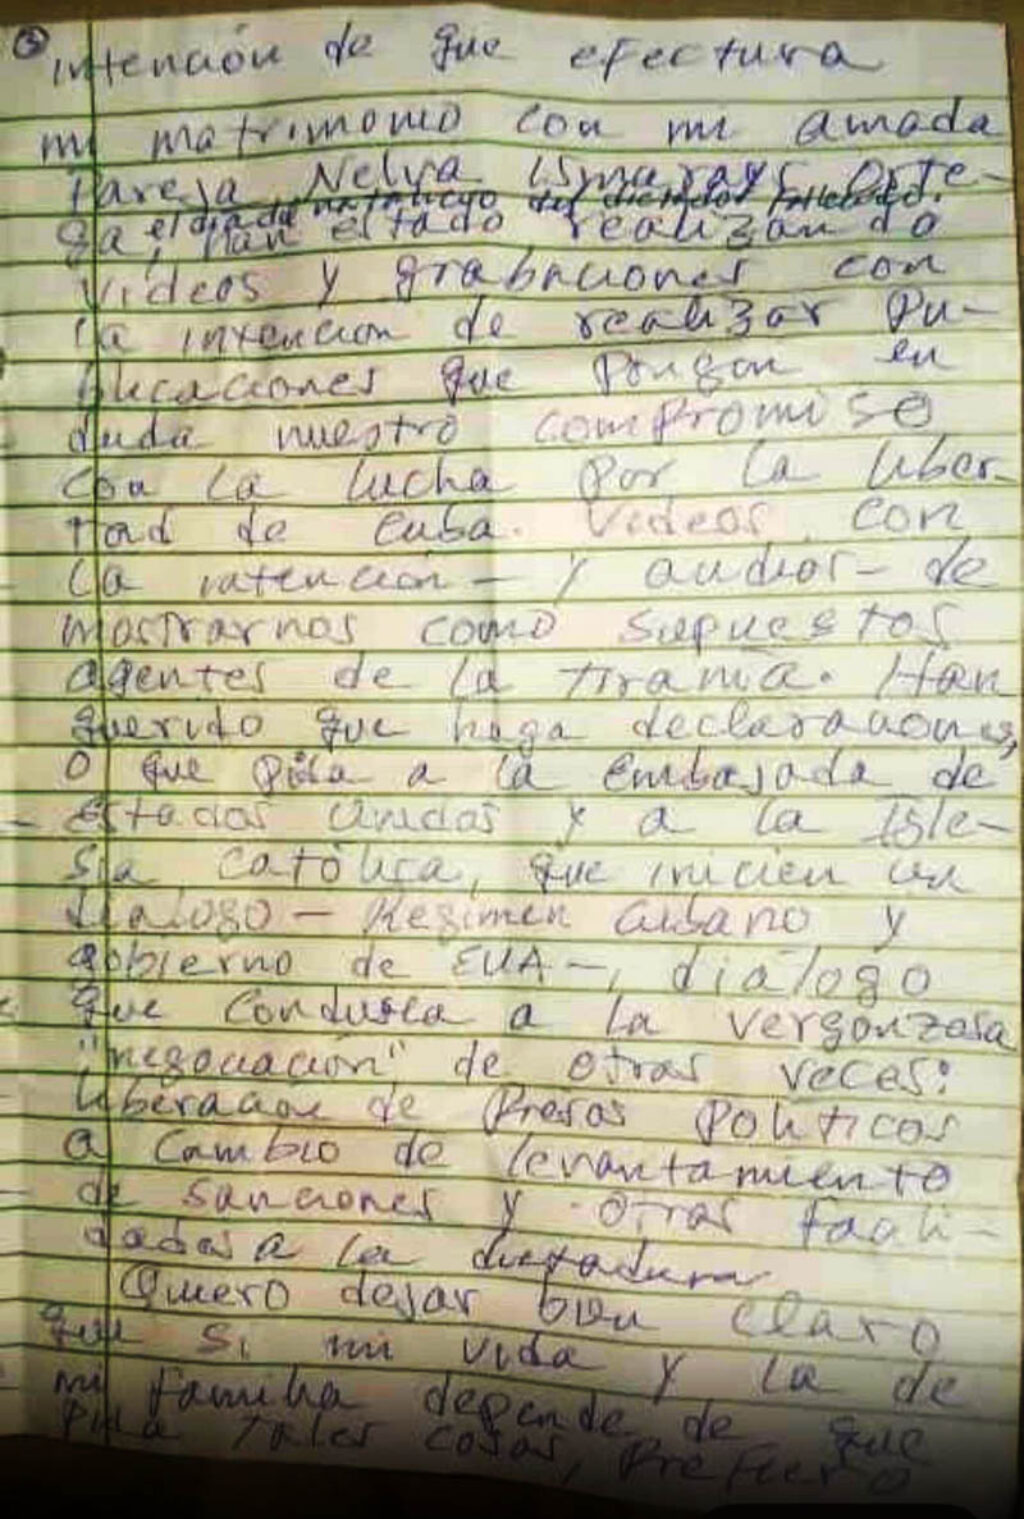 ③ intención de que efectura
mi matrimonio con mi amada
pareja Nelva Ismarays Orte-
el día de natalicio del dictador fallecido.
ga, han estado realizando
videos y grabaciones con
la intención de realizar pu-
blicaciones que pongan en
duda nuestro compromiso
con la lucha por la liber-
tad de Cuba. Videos con
la intención - y audios - de
mostrarnos como supuestos
agentes de la tiranía. Han
querido que haga declaraciones,
o que pida a la embajada de
Estados Unidos y a la Igle-
sia católica, que inicien un
diálogo - Régimen cubano y
gobierno de EUA -, diálogo
que conduzca a la vergonzosa
"negociación" de otras veces:
liberación de Presos Políticos
a cambio de levantamiento
de sanciones y otras facili-
dades a la dictadura
Quiero dejar bien claro
que si mi vida y la de
mi familia depende de que
pida tales cosas, prefiero